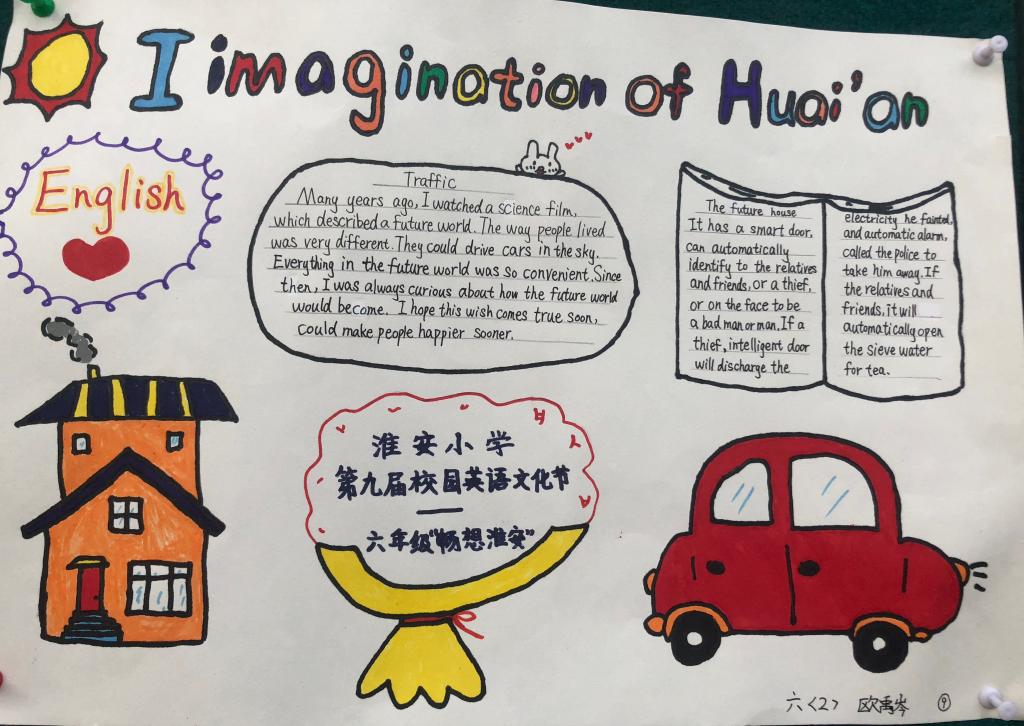 I imagination of Huai'an
English
Traffic
Many years ago, I watched a science film,
which described a future world. The way people lived
was very different. They could drive cars in the sky.
Everything in the future world was so convenient. Since
then, I was always curious about how the future world
would become. I hope this wish comes true soon,
could make people happier sooner.
The future house
It has a smart door,
can automatically
identify to the relatives
and friends, or a thief,
or on the face to be
a bad man or man. If a
thief, intelligent door
will discharge the
electricity he fainted,
and automatic alarm,
called the police to
take him away. If
the relatives and
friends, it will
automatically open
the sieve water
for tea.
淮安小学
第九届校园英语文化节
—
六年级"畅想淮安"
六<2> 欧禹岑 ⑨